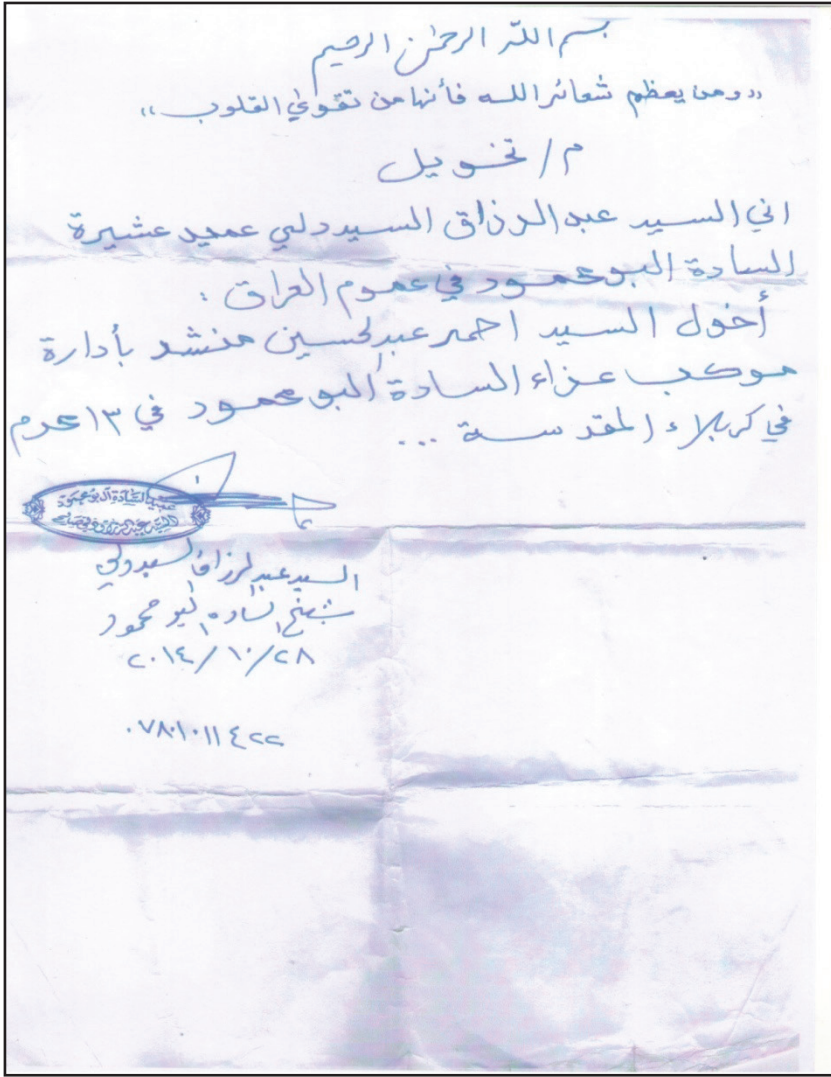 بسم الله الرحمن الرحيم
"ومن يعظم شعائر الله فأنها من تقوى القلوب"
م/ تخويل
اني السيد عبد الرزاق السيد ولي عميد عشيرة
السادة البو محمود في عموم العراق :
أخول السيد احمد عبد الحسين منشد بأدارة
موكب عزاء السادة البو محمود في ١٣ محرم
في كربلاء المقدسة ...
عميد السادة البو محمود
السيد عبد الرزاق
السيد عبد الرزاق السيد ولي
شيخ السادة البو محمود
٢٠١٤/١٠/٢٨
٠٧٨٠١٠١١٤٢٢